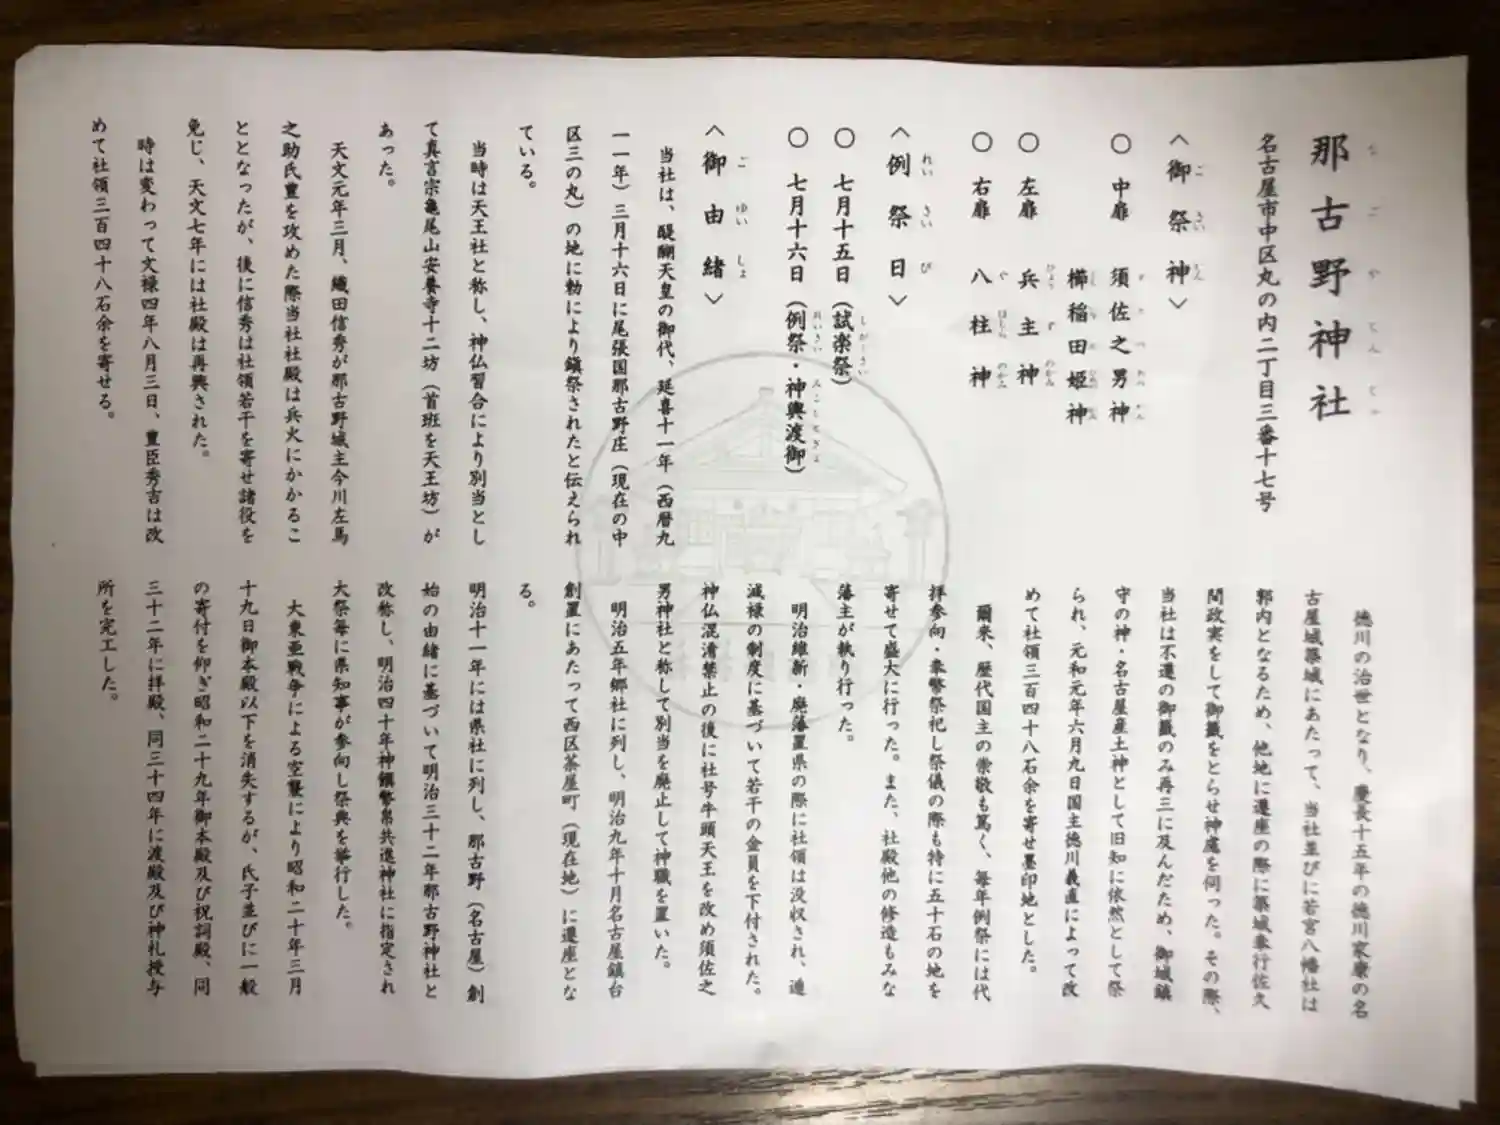 那古野神社
名古屋市中区丸の内二丁目三番十七号
〈御祭神〉
〇 中扉 須佐之男神
櫛稲田姫神
〇 左扉 兵主神
〇 右扉 八柱神
〈例祭日〉
〇 七月十五日（試楽祭）
〇 七月十六日（例祭・神輿渡御）
〈御由緒〉
当社は、醍醐天皇の御代、延喜十一年（西暦九
一一年）三月十六日に尾張国那古野庄（現在の中
区三の丸）の地に勅により鎮祭されたと伝えられ
ている。
当時は天王社と称し、神仏習合により別当とし
て真言宗亀尾山安養寺十二坊（首班を天王坊）が
あった。
天文元年三月、織田信秀が那古野城主今川左馬
之助氏豊を攻めた際当社社殿は兵火にかかるこ
ととなったが、後に信秀は社領若干を寄せ諸役を
免じ、天文七年には社殿は再興された。
時は変わって文禄四年八月三日、豊臣秀吉は改
めて社領三百四十八石余を寄せる。
徳川の治世となり、慶長十五年の徳川家康の名
古屋城築城にあたって、当社並びに若宮八幡社は
郭内となるため、他地に遷座の際に築城奉行佐久
間政実をして御籤をとらせ神慮を伺った。その際、
当社は不遷の御籤のみ再三に及んだため、御城鎮
守の神・名古屋産土神として旧知に依然として祭
られ、元和元年六月九日国主徳川義直によって改
めて社領三百四十八石余を寄せ墨印地とした。
爾来、歴代国主の崇敬も篤く、毎年例祭には代
拝参向・奉幣祭祀し祭儀の際も特に五十石の地を
寄せて盛大に行った。また、社殿他の修造もみな
藩主が執り行った。
明治維新・廃藩置県の際に社領は没収され、逓
減禄の制度に基づいて若干の金員を下付された。
神仏混淆禁止の後に社号牛頭天王を改め須佐之
男神社と称して別当を廃止して神職を置いた。
明治五年郷社に列し、明治九年十月名古屋鎮台
創置にあたって西区茶屋町（現在地）に遷座とな
る。
明治十一年には県社に列し、那古野（名古屋）創
始の由緒に基づいて明治三十二年那古野神社と
改称し、明治四十年神饌幣帛共進神社に指定され
大祭毎に県知事が参向し祭典を挙行した。
大東亜戦争による空襲により昭和二十年三月
十九日御本殿以下を消失するが、氏子並びに一般
の寄付を仰ぎ昭和二十九年御本殿及び祝詞殿、同
三十二年に拝殿、同三十四年に渡殿及び神札授与
所を完工した。